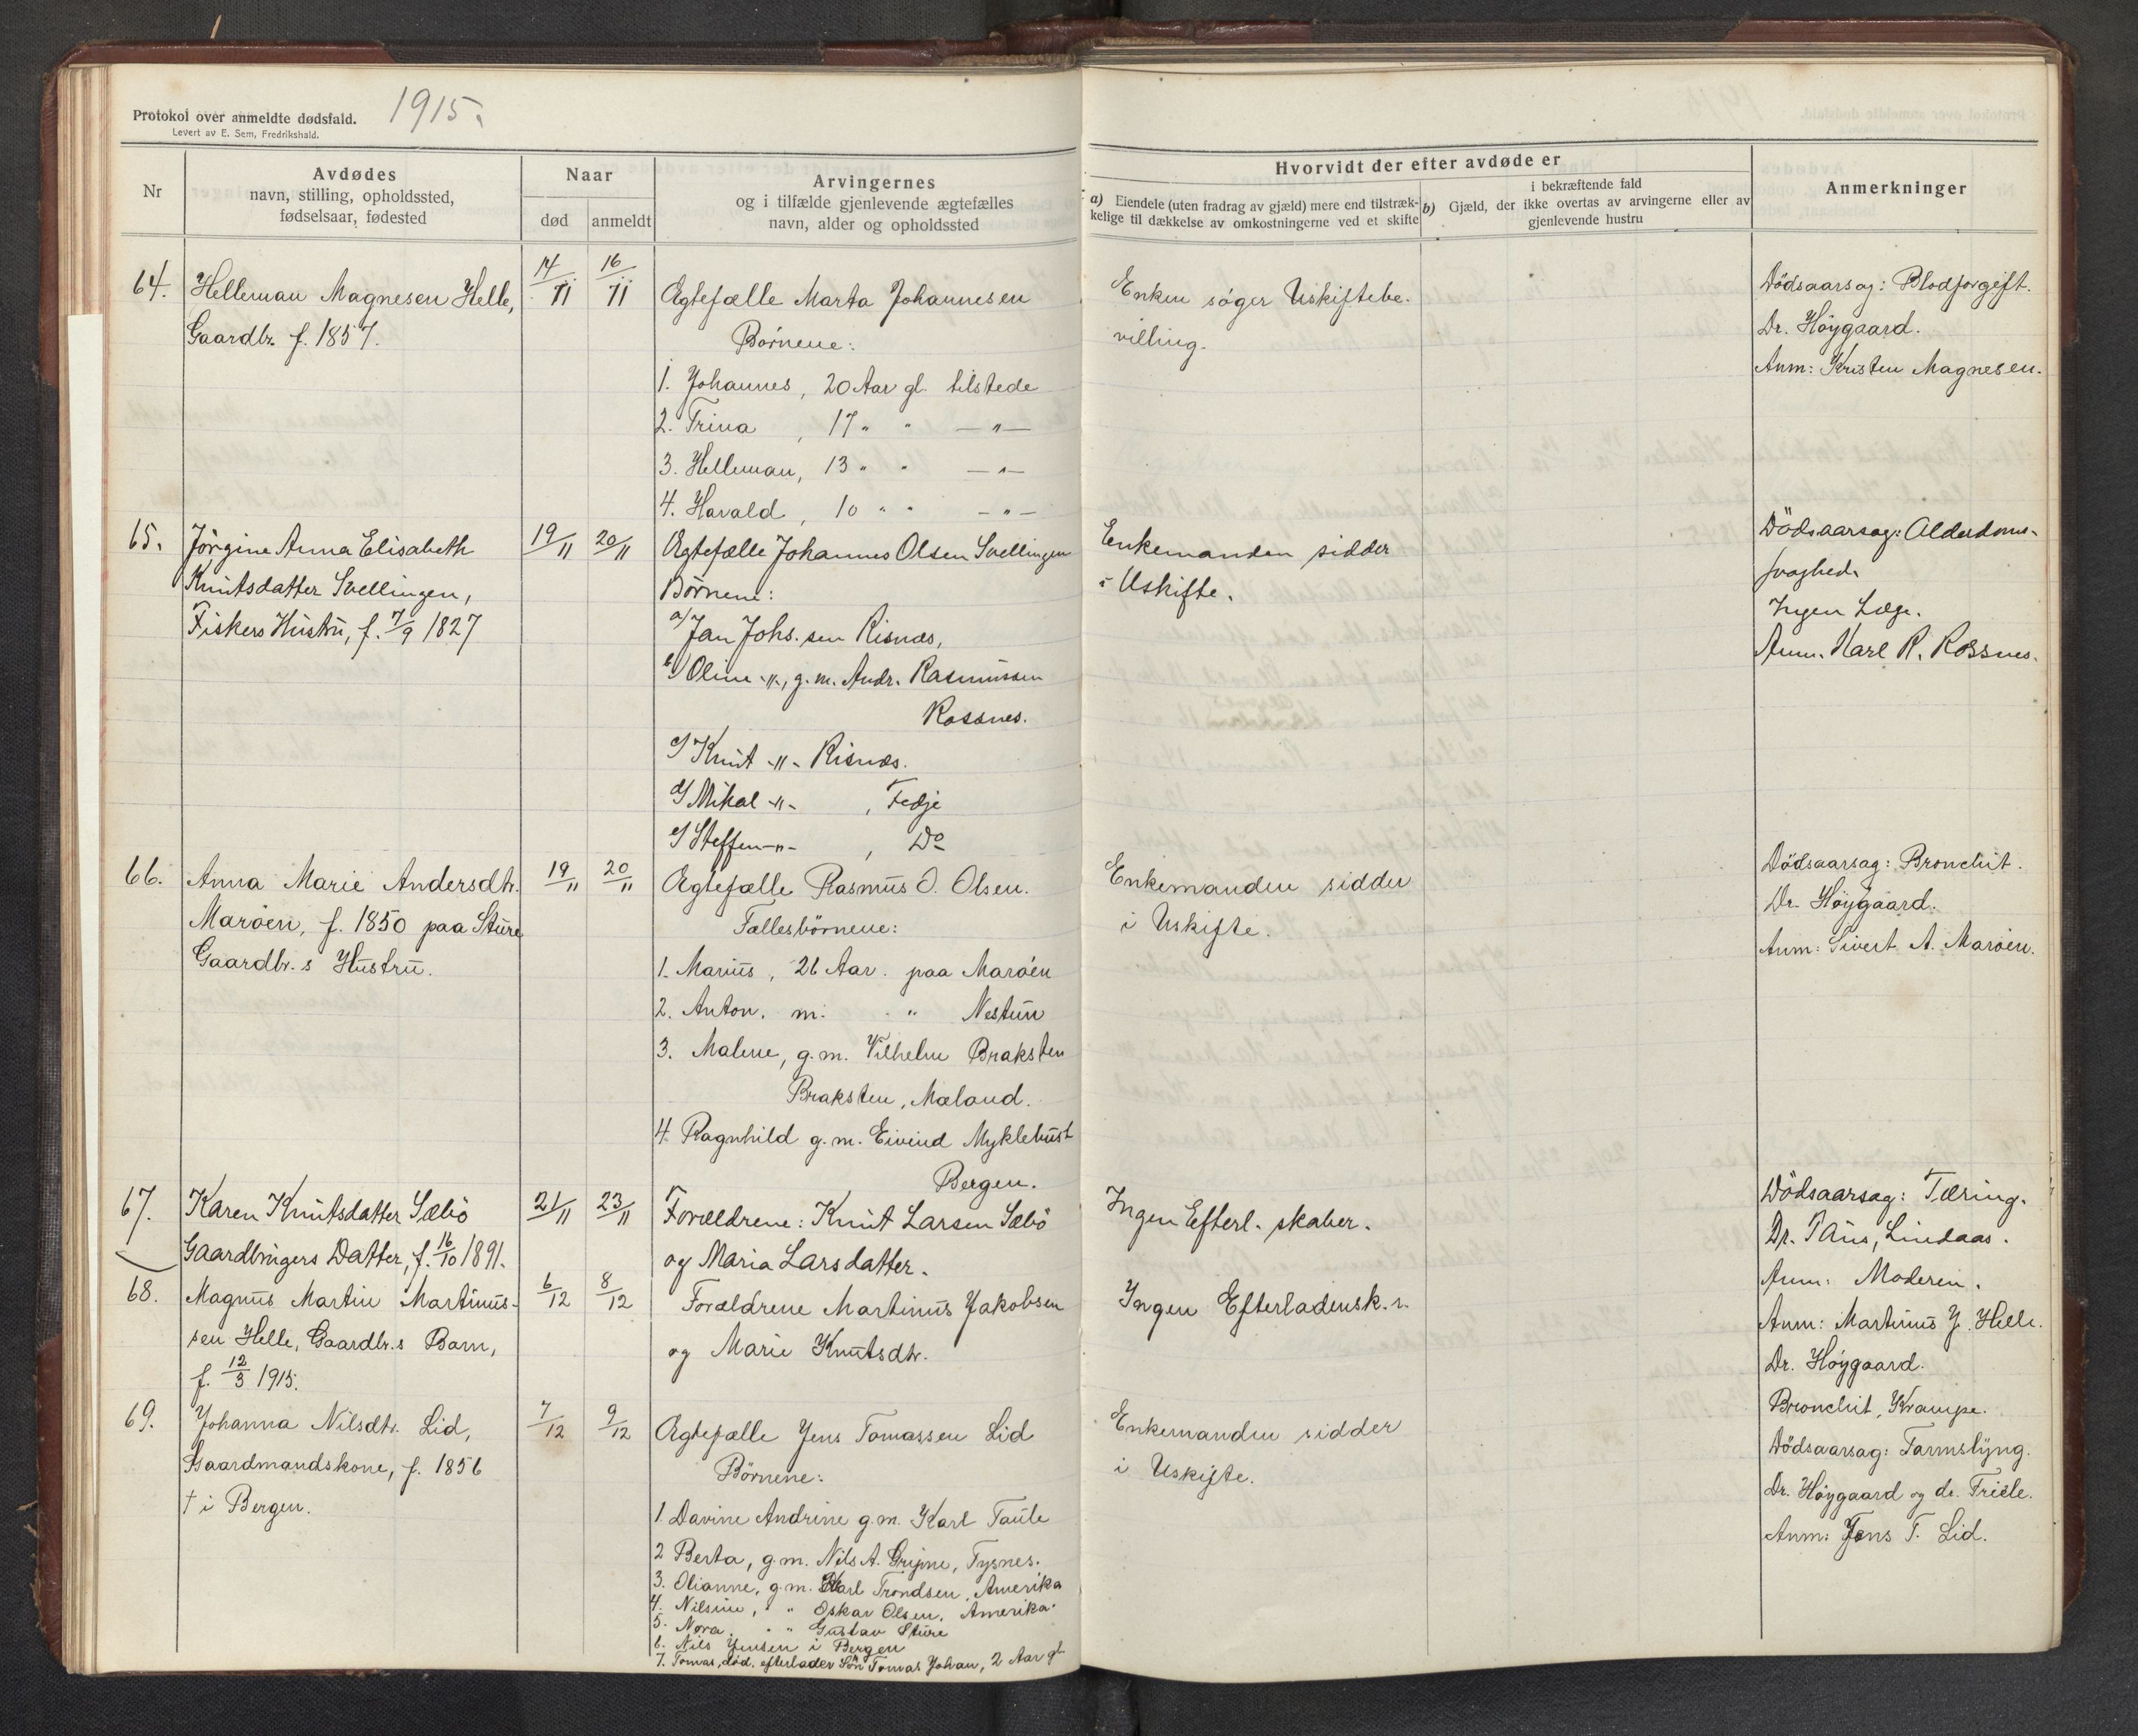 Protokol over anmeldte dødsfald. 1915.
Levert av E. Sem, Fredrikshald.
Nr
Avdødes
navn, stilling, opholdssted,
fødselsaar, fødested
Naar
død
anmeldt
Arvingernes
og i tilfælde gjenlevende ægtefælles
navn, alder og opholdssted
Hvorvidt der efter avdøde er
a) Eiendele (uten fradrag av gjæld) mere end tilstræk-
kelige til dækkelse av omkostningerne ved et skifte
i bekræftende fald
b) Gjæld, der ikke overtas av arvingerne eller av
gjenlevende hustru
Anmerkninger
64.
Helleman Magnesen Helle,
Gaardbr. f. 1857.
14/11
16/11
Ægtefælle Marta Johannesen
Børnene:
1. Johannes, 20 Aar gl. tilstede
2. Trina , 17 " " — " —
3. Helleman, 13 " " — " —
4. Harald , 10 " " — " —
Enken søger Uskiftebe-
villing.
Dödsaarsag: Blodforgift.
Dr. Höygaard.
Anm: Kristen Magnesen.
65.
Jörgine Anna Elisabeth
Knutsdatter Svellingen,
Fiskers Hustru, f. 7/9 1827
19/11
20/11
Ægtefælle Johannes Olsen Svellingen
Börnene:
a/ Jan Johs.sen Risnæs,
b/ Oline -"-, g.m. Andr. Rasmussen
Rossnes.
c/ Knut -"- Risnæs.
d/ Mikal -"- , Fedje
e/ Steffen -"- , Do
Enkemanden sidder
i Uskifte.
Dödsaarsag: Alderdoms-
svaghed.
Ingen Læge.
Anm. Karl R. Rossnes.
66.
Anna Marie Andersdtr.
Maröen, f. 1850 paa Sture
Gaardbr.s Hustru.
19/11
20/11
Ægtefælle Rasmus O. Olsen.
Fællesbörnene:
1. Marius, 26 Aar. paa Maröen
2. Anton. m. " Nestun
3. Malene, g.m. Vilhelm Braksten
Braksten, Mæland.
4. Ragnhild g.m. Eivind Myklebust
Bergen.
Enkemanden sidder
i Uskifte.
Dödsaarsag: Bronchit.
Dr. Höygaard.
Anm: Sivert A. Maröen.
67.
Karen Knutsdatter Sæbö
Gaardbrugers Datter, f. 16/10 1891.
21/11
23/11
Forældrene: Knut Larsen Sæbö
og Maria Larsdatter.
Ingen Efterl.skaber.
Dödsaarsag: Tæring.
Dr. Paus, Lindaas.
Anm: Moderen.
68.
Magnus Martin Martinus-
sen Helle, Gaardbr.s Barn,
f. 12/3 1915.
6/12
8/12
Forældrene Martinus Jakobsen
og Marie Knutsdtr.
Ingen Efterladensk.r.
Anm: Martinus J. Helle.
Dr. Höygaard.
Bronchit, Krampe.
69.
Johanna Nilsdtr. Lid,
Gaardmandskone, f. 1856
† i Bergen.
7/12
9/12
Ægtefælle Jens Tomassen Lid
Börnene:
1. Davine Andrine g.m. Karl Taule
2 Berta, g.m. Nils A. Tysnes.
3. Olianne, g.m. Karl Trondsen, Amerika
4. Nilsine, " " Oskar Olsen, Amerika
5. Nora. " " Gustav Sture
6. Nils Jensen i Bergen
7. Tomas, död. efterlader Sön Tomas Johan, 2 Aar gl
Enkemanden sidder
i Uskifte.
Dödsaarsag: Tarmslyng.
Dr. Höygaard og dr. Friele.
Anm: Jens T. Lid.